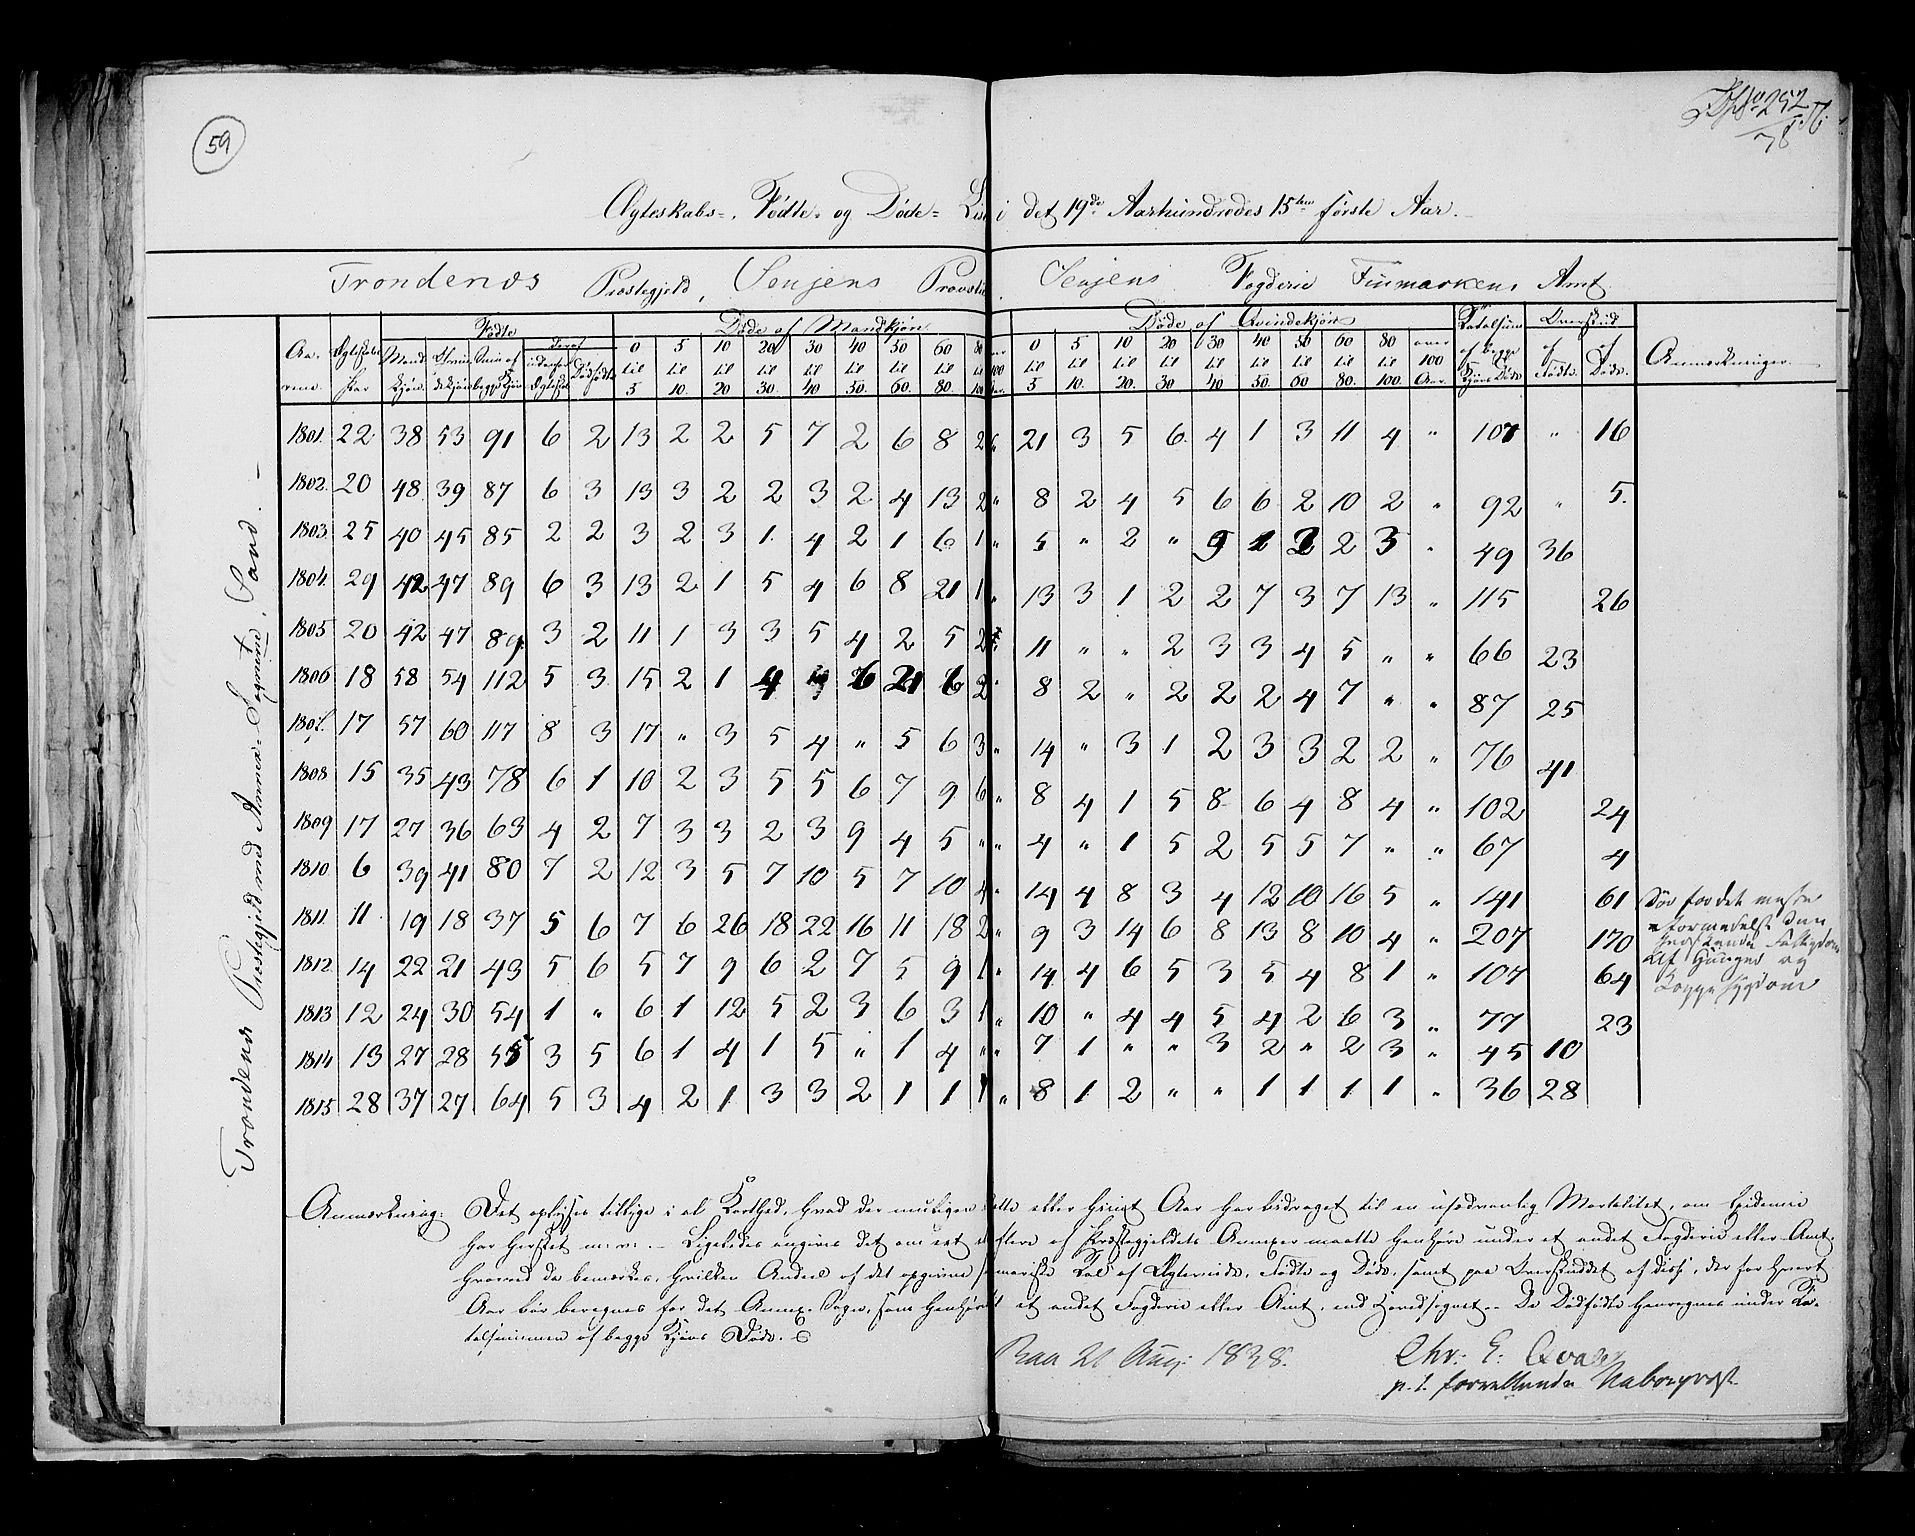 59
252
78
Ægteskabs-, Fødte- og Døde- Liste i det 19de Aarhundredes 15ten første Aar.
Trondenæs Præstegjeld, Senjens Provstie, Senjens Fogderie Finmarkens Amt
Trondenæs Præstegjeld med Annex-Sognene, Sand.
Fødte Døde af Mandkjøn Døde af Qvindekjøn Totalsum Overskud
Aarene Ægteskaber Mandkjøn Qvindekjøn Sum af begge Kjøn Deraf udenfor Ægteskab Dødfødte 0 til 5 5 til 10. 10 til 20 20 til 30. 30 til 40 40 til 50. 50 til 60. 60 til 80. 80 til 100 over 100 Aar. 0 til 5 5 til 10. 10 til 20. 20 til 30 30 til 40 40 til 50. 50 til 60 60 til 80. 80 til 100. over 100 Aar. af begge Kjøns Døde af Fødte. af Døde. Anmærkninger.
1801. 22 38 53 91 6 2 13 2 2 5 7 2 6 8 2 " 21 3 5 6 4 1 3 11 4 " 107 " 16
1802. 20 48 39 87 6 3 13 3 2 2 3 2 4 13 2 " 8 2 4 5 6 6 2 10 2 " 92 " 5.
1803. 25 40 45 85 2 2 3 2 3 1 4 2 1 6 1 " 5 " 2 " 9 1 2 2 3 " 49 36
1804. 29 42 47 89 6 3 13 2 1 5 4 6 8 21 1 " 13 3 1 2 2 7 3 7 13 " 115 26
1805 20 42 47 89 3 2 11 1 3 3 5 4 2 5 2 11 " " 2 3 3 4 5 " " 66 23
1806 18 58 54 112 5 3 15 2 1 4 6 21 6 2 " 8 2 " 2 2 2 4 7 " " 87 25
1807. 17 57 60 117 8 3 17 " 3 5 4 " 5 6 3 " 14 " 3 1 2 3 3 2 2 " 76 41
1808 15 35 43 78 6 1 10 2 3 5 5 6 7 9 6 " 8 4 1 5 8 6 4 8 4 " 102 24
1809 17 27 36 63 4 2 7 3 3 2 3 9 4 5 " " 4 " 1 5 2 5 5 7 " " 67 4
1810 6 39 41 80 7 2 12 3 5 7 10 5 7 10 4 " 14 4 8 3 4 12 10 16 5 " 141 61 Døe for det meste
1811. 11 19 18 37 5 6 7 6 26 18 22 16 11 18 2 " 9 3 14 6 8 13 8 10 4 " 207 170 formedelst den
1812. 14 22 21 43 5 6 5 7 9 6 2 7 5 9 1 " 14 4 6 5 3 5 4 8 1 " 107 64 af Hunger og
1813 12 24 30 54 1 " 6 1 12 5 2 3 6 3 1 " 10 " 4 4 5 4 2 6 3 " 77 23
1814 13 27 28 55 3 5 6 1 4 1 5 " 1 4 " " 7 1 " " 3 2 " 2 3 " 45 10
1815 28 37 27 64 5 3 4 2 1 3 3 2 1 1 1 " 8 1 2 " " 1 1 1 1 " 36 28
Anmærkning: Det oplyses tillige i al Korthed, hvad der muligen i dette eller hiint Aar har bidraget til en usædvanlig Mortalitet, om Epidemie
har hersket m: v: . - Ligeledes angives det om et eller flere af Præstegjeldets Annexer maatte henhøre under et andet Fogderie eller Amt,
hvorved da bemærkes, hvilken Andeel af det opgivne summariske Tal af Ægteviede, Fødte og Døde, samt paa Overskuddet af disse, der for hvert
Aar bør beregnes for det Annex-Sogn, som henhører til et andet Fogderie eller Amt, end Hovedsognet. - De Dødfødte henregnes under To-
talsummen af begge Kjøns Døde.
21 Aug: 1838. Chr: E:
p. t.